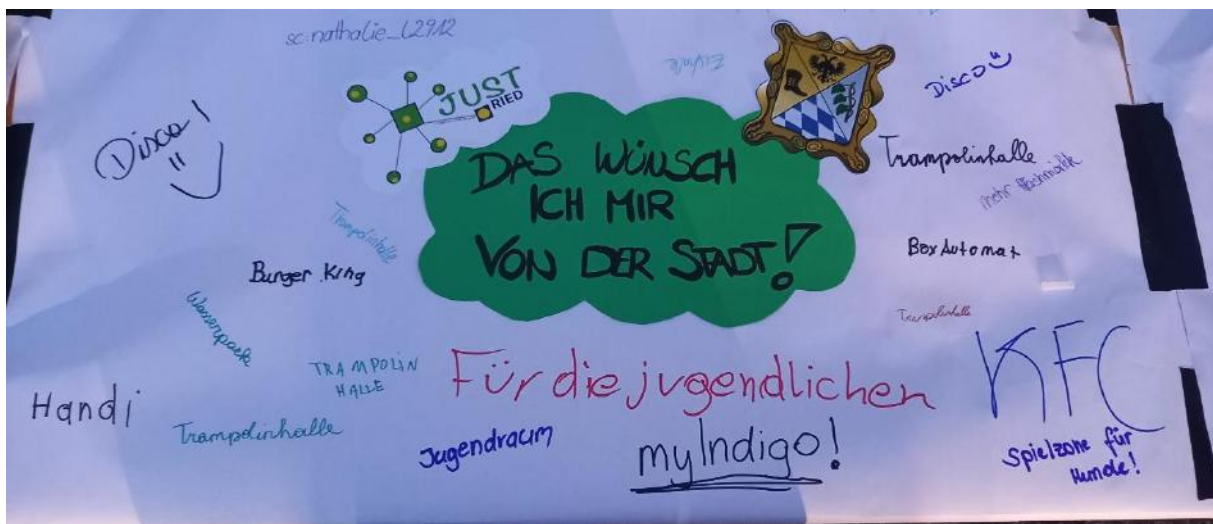 sc:nathalie_L2912
JUST
RIED
Disco!
Disco
DAS WÜNSCH
ICH MIR
VON DER STADT!
Trampolinhalle
mehr
Trampolinhalle
Burger King
Box Automat
Wasserpark
Trampolinhalle
TRAMPOLIN
HALLE
Für die jugendlichen
KFC
Handi
Trampolinhalle
Jugendraum
myIndigo!
Spielzone für
Hunde!